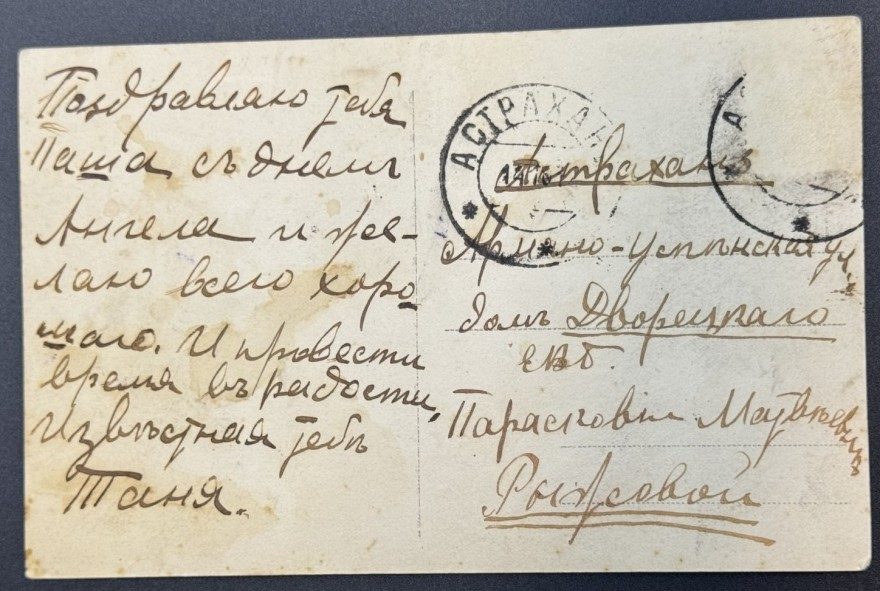 Поздравляю тебя
Паша съ днемъ
Ангела и же-
лаю всего хоро
шаго. И провести
время въ радости,
Извѣстная тебѣ
Таня.
АСТРАХА
Астрахань
Армяно-Успѣнская ул.
домъ Дворецкаго
ЕВБ.
Парасковіи Матвѣевнѣ
Рыжовой